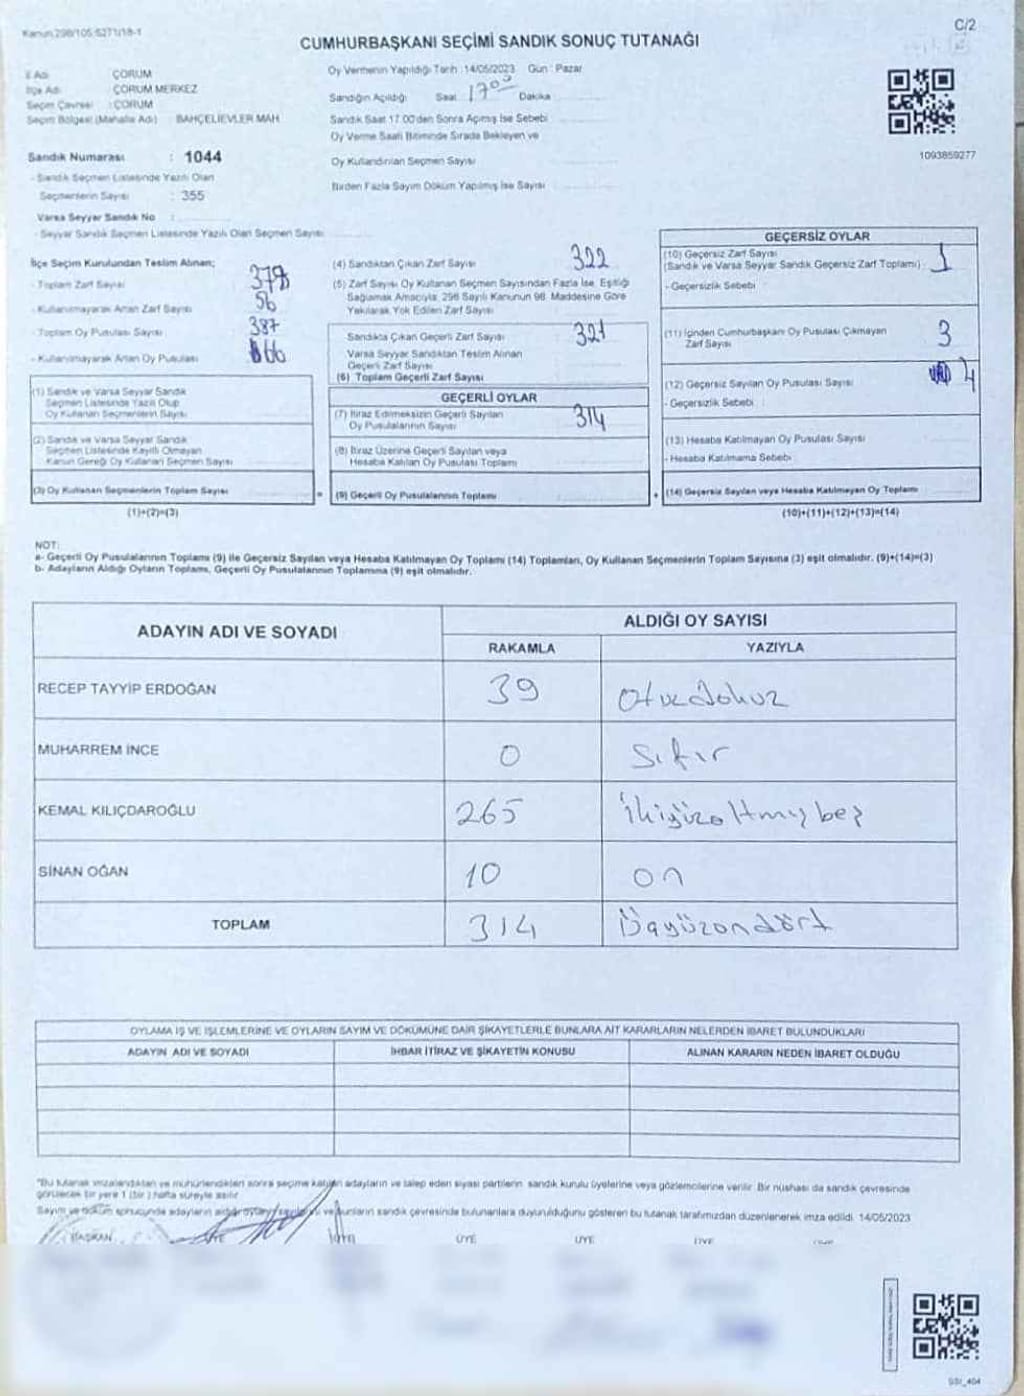 Kanun 298/105 5271/18-1
C/2
CUMHURBAŞKANI SEÇİMİ SANDIK SONUÇ TUTANAĞI
İl Adı : ÇORUM
İlçe Adı : ÇORUM MERKEZ
Seçim Çevresi : ÇORUM
Seçim Bölgesi (Mahalle Adı) : BAHÇELİEVLER MAH.
Sandık Numarası : 1044
- Sandık Seçmen Listesinde Yazılı Olan
Seçmenlerin Sayısı : 355
Varsa Seyyar Sandık No :
- Seyyar Sandık Seçmen Listesinde Yazılı Olan Seçmen Sayısı
Oy Vermenin Yapıldığı Tarih :14/05/2023 Gün : Pazar
Sandığın Açıldığı Saat 17 00 Dakika
Sandık Saat 17.00'den Sonra Açılmış İse Sebebi
Oy Verme Saati Bitiminde Sırada Bekleyen ve
Oy Kullandırılan Seçmen Sayısı
Birden Fazla Sayım Döküm Yapılmış İse Sayısı
1093859277
İlçe Seçim Kurulundan Teslim Alınan;
- Toplam Zarf Sayısı 378
- Kullanılmayarak Artan Zarf Sayısı 56
- Toplam Oy Pusulası Sayısı 387
- Kullanılmayarak Artan Oy Pusulası 66
(1) Sandık ve Varsa Seyyar Sandık
Seçmen Listesinde Yazılı Olup
Oy Kullanan Seçmenlerin Sayısı
(2) Sandık ve Varsa Seyyar Sandık
Seçmen Listesinde Kayıtlı Olmayan
Kanun Gereği Oy Kullanan Seçmen Sayısı
(3) Oy Kullanan Seçmenlerin Toplam Sayısı
(1)+(2)=(3)
(4) Sandıktan Çıkan Zarf Sayısı 322
(5) Zarf Sayısı Oy Kullanan Seçmen Sayısından Fazla İse, Eşitliği
Sağlamak Amacıyla, 298 Sayılı Kanunun 98. Maddesine Göre
Yakılarak Yok Edilen Zarf Sayısı
Sandıkta Çıkan Geçerli Zarf Sayısı 321
Varsa Seyyar Sandıktan Teslim Alınan
Geçerli Zarf Sayısı
(6) Toplam Geçerli Zarf Sayısı
GEÇERLİ OYLAR
(7) İtiraz Edilmeksizin Geçerli Sayılan
Oy Pusulalarının Sayısı 314
(8) İtiraz Üzerine Geçerli Sayılan veya
Hesaba Katılan Oy Pusulası Toplamı
= (9) Geçerli Oy Pusulalarının Toplamı
GEÇERSİZ OYLAR
(10) Geçersiz Zarf Sayısı
(Sandık ve Varsa Seyyar Sandık Geçersiz Zarf Toplamı) : 1
- Geçersizlik Sebebi
(11) İçinden Cumhurbaşkanı Oy Pusulası Çıkmayan
Zarf Sayısı 3
(12) Geçersiz Sayılan Oy Pusulası Sayısı 4
- Geçersizlik Sebebi :
(13) Hesaba Katılmayan Oy Pusulası Sayısı
- Hesaba Katılmama Sebebi
+ (14) Geçersiz Sayılan veya Hesaba Katılmayan Oy Toplamı
(10)+(11)+(12)+(13)=(14)
NOT:
a- Geçerli Oy Pusulalarının Toplamı (9) ile Geçersiz Sayılan veya Hesaba Katılmayan Oy Toplamı (14) Toplamları, Oy Kullanan Seçmenlerin Toplam Sayısına (3) eşit olmalıdır. (9)+(14)=(3)
b- Adayların Aldığı Oyların Toplamı, Geçerli Oy Pusulalarının Toplamına (9) eşit olmalıdır.
ADAYIN ADI VE SOYADI
ALDIĞI OY SAYISI
RAKAMLA YAZIYLA
RECEP TAYYİP ERDOĞAN 39 Otuzdokuz
MUHARREM İNCE 0 Sıfır
KEMAL KILIÇDAROĞLU 265 İkiyüzaltmışbeş
SİNAN OĞAN 10 on
TOPLAM 314 Üçyüzondört
OYLAMA İŞ VE İŞLEMLERİNE VE OYLARIN SAYIM VE DÖKÜMÜNE DAİR ŞİKAYETLERLE BUNLARA AİT KARARLARIN NELERDEN İBARET BULUNDUKLARI
ADAYIN ADI VE SOYADI İHBAR İTİRAZ VE ŞİKAYETİN KONUSU ALINAN KARARIN NEDEN İBARET OLDUĞU
"Bu tutanak imzalandıktan ve mühürlendikten sonra seçime katılan adayların ve talep eden siyasi partilerin sandık kurulu üyelerine veya gözlemcilerine verilir. Bir nüshası da sandık çevresinde
görülecek bir yere 1 (bir) hafta süreyle asılır.
Sayım ve döküm sonucunda adayların aldığı oyları ve bunların sandık çevresinde bulunanlara duyurulduğunu gösteren bu tutanak tarafımızdan düzenlenerek imza edildi. 14/05/2023
BAŞKAN ÜYE ÜYE ÜYE ÜYE
SSI_404